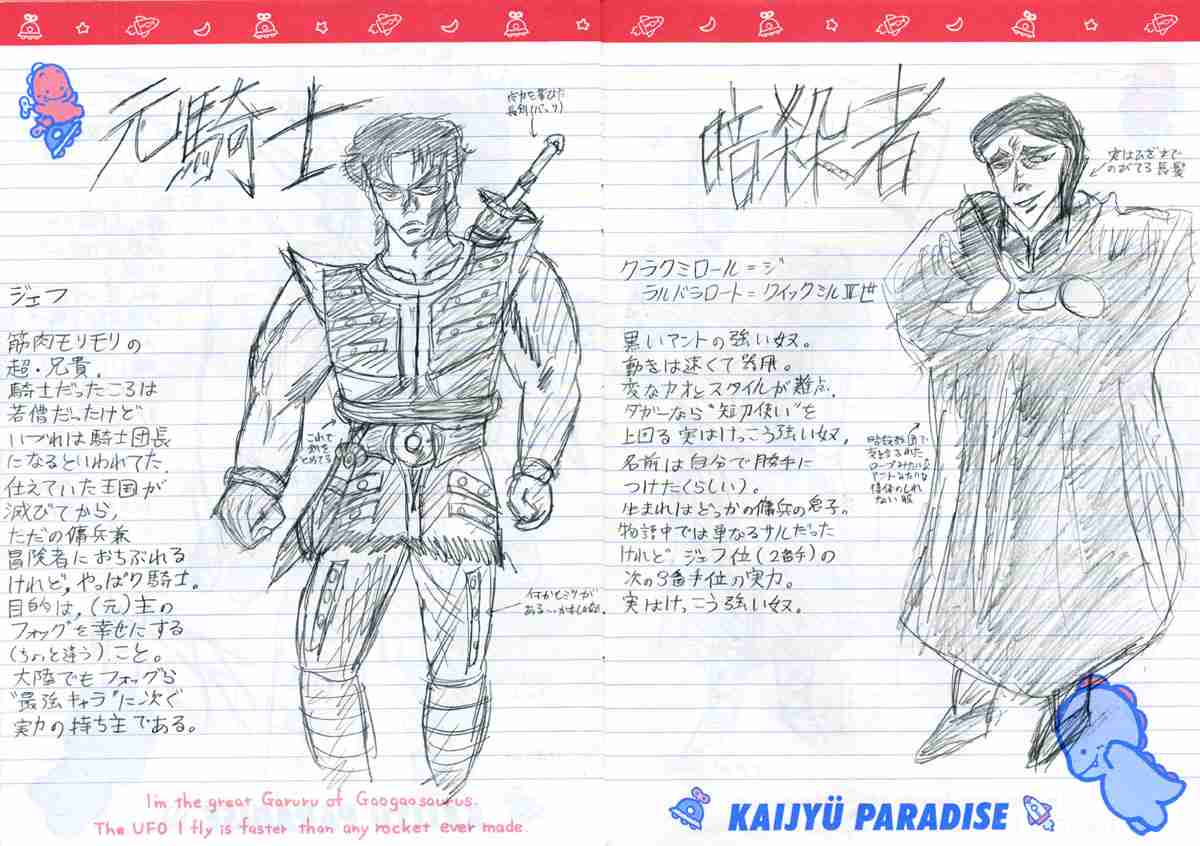 元騎士
ジェフ
筋肉モリモリの
超・兄貴.
騎士だったころは
若僧だったけど
いづれは騎士団長
になるといわれてた.
仕えていた王国が
滅びてから,
ただの傭兵兼
冒険者におちぶれる
けれど,やっぱり騎士。
目的は,(元)主の
フォッグを幸せにする
(ちょっと違う)こと。
大陸でもフォッグら
"最強キャラ"に次ぐ
実力の持ち主である。
長剣(バック)
これで
剣を
とめてる
何かヒミツが
ある…かもしれない.
I'm the great Garuru of Gaogaosaurus.
The UFO I fly is faster than any rocket ever made.
暗殺者
実はひざまで
のびてる長髪
クラクミロール=ジ
ラルバラロート=クィックシルⅢ世
黒いマントの強い奴。
動きは速くて器用。
変なカオとスタイルが難点.
ダガーなら"短刀使い"を
上回る実はけっこう強い奴,
名前は自分で勝手に
つけた(らしい)。
生まれはどっかの傭兵の息子。
物語中では単なるサルだった
けれどジェフ位(2番手)の
次の3番手位の実力。
実はけっこう強い奴。
ローブみたいな
マントみたいな
ない服
KAIJYÜ PARADISE